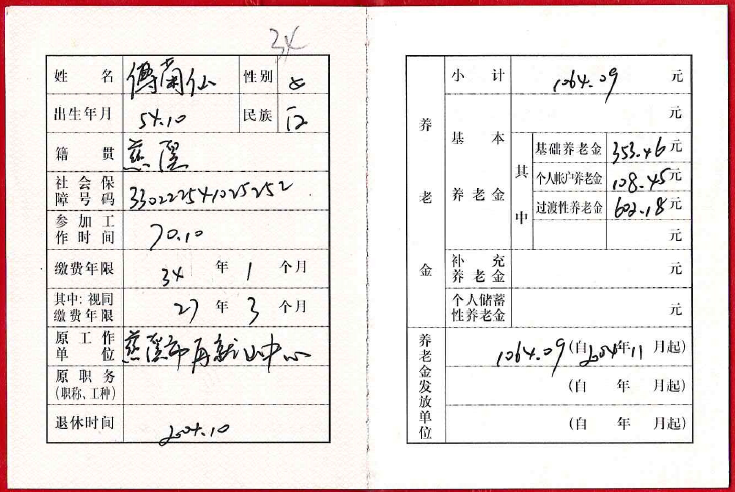 34
姓名 傅菊仙 性别 女
出生年月 54.10 民族 汉
籍贯 慈溪
社会保障号码 330222541025252
参加工作时间 70.10
缴费年限 34 年 1 个月
其中:视同缴费年限 27 年 3 个月
原工作单位 慈溪市再就业中心
原职务(职称、工种)
退休时间 2004.10
养老金
小计 1064.09 元
基本养老金 元
其中
基础养老金 353.46 元
个人帐户养老金 108.45 元
过渡性养老金 602.18 元
元
补充养老金 元
个人储蓄性养老金 元
养老金发放单位
1064.09 (自2004年11月起)
(自 年 月起)
(自 年 月起)